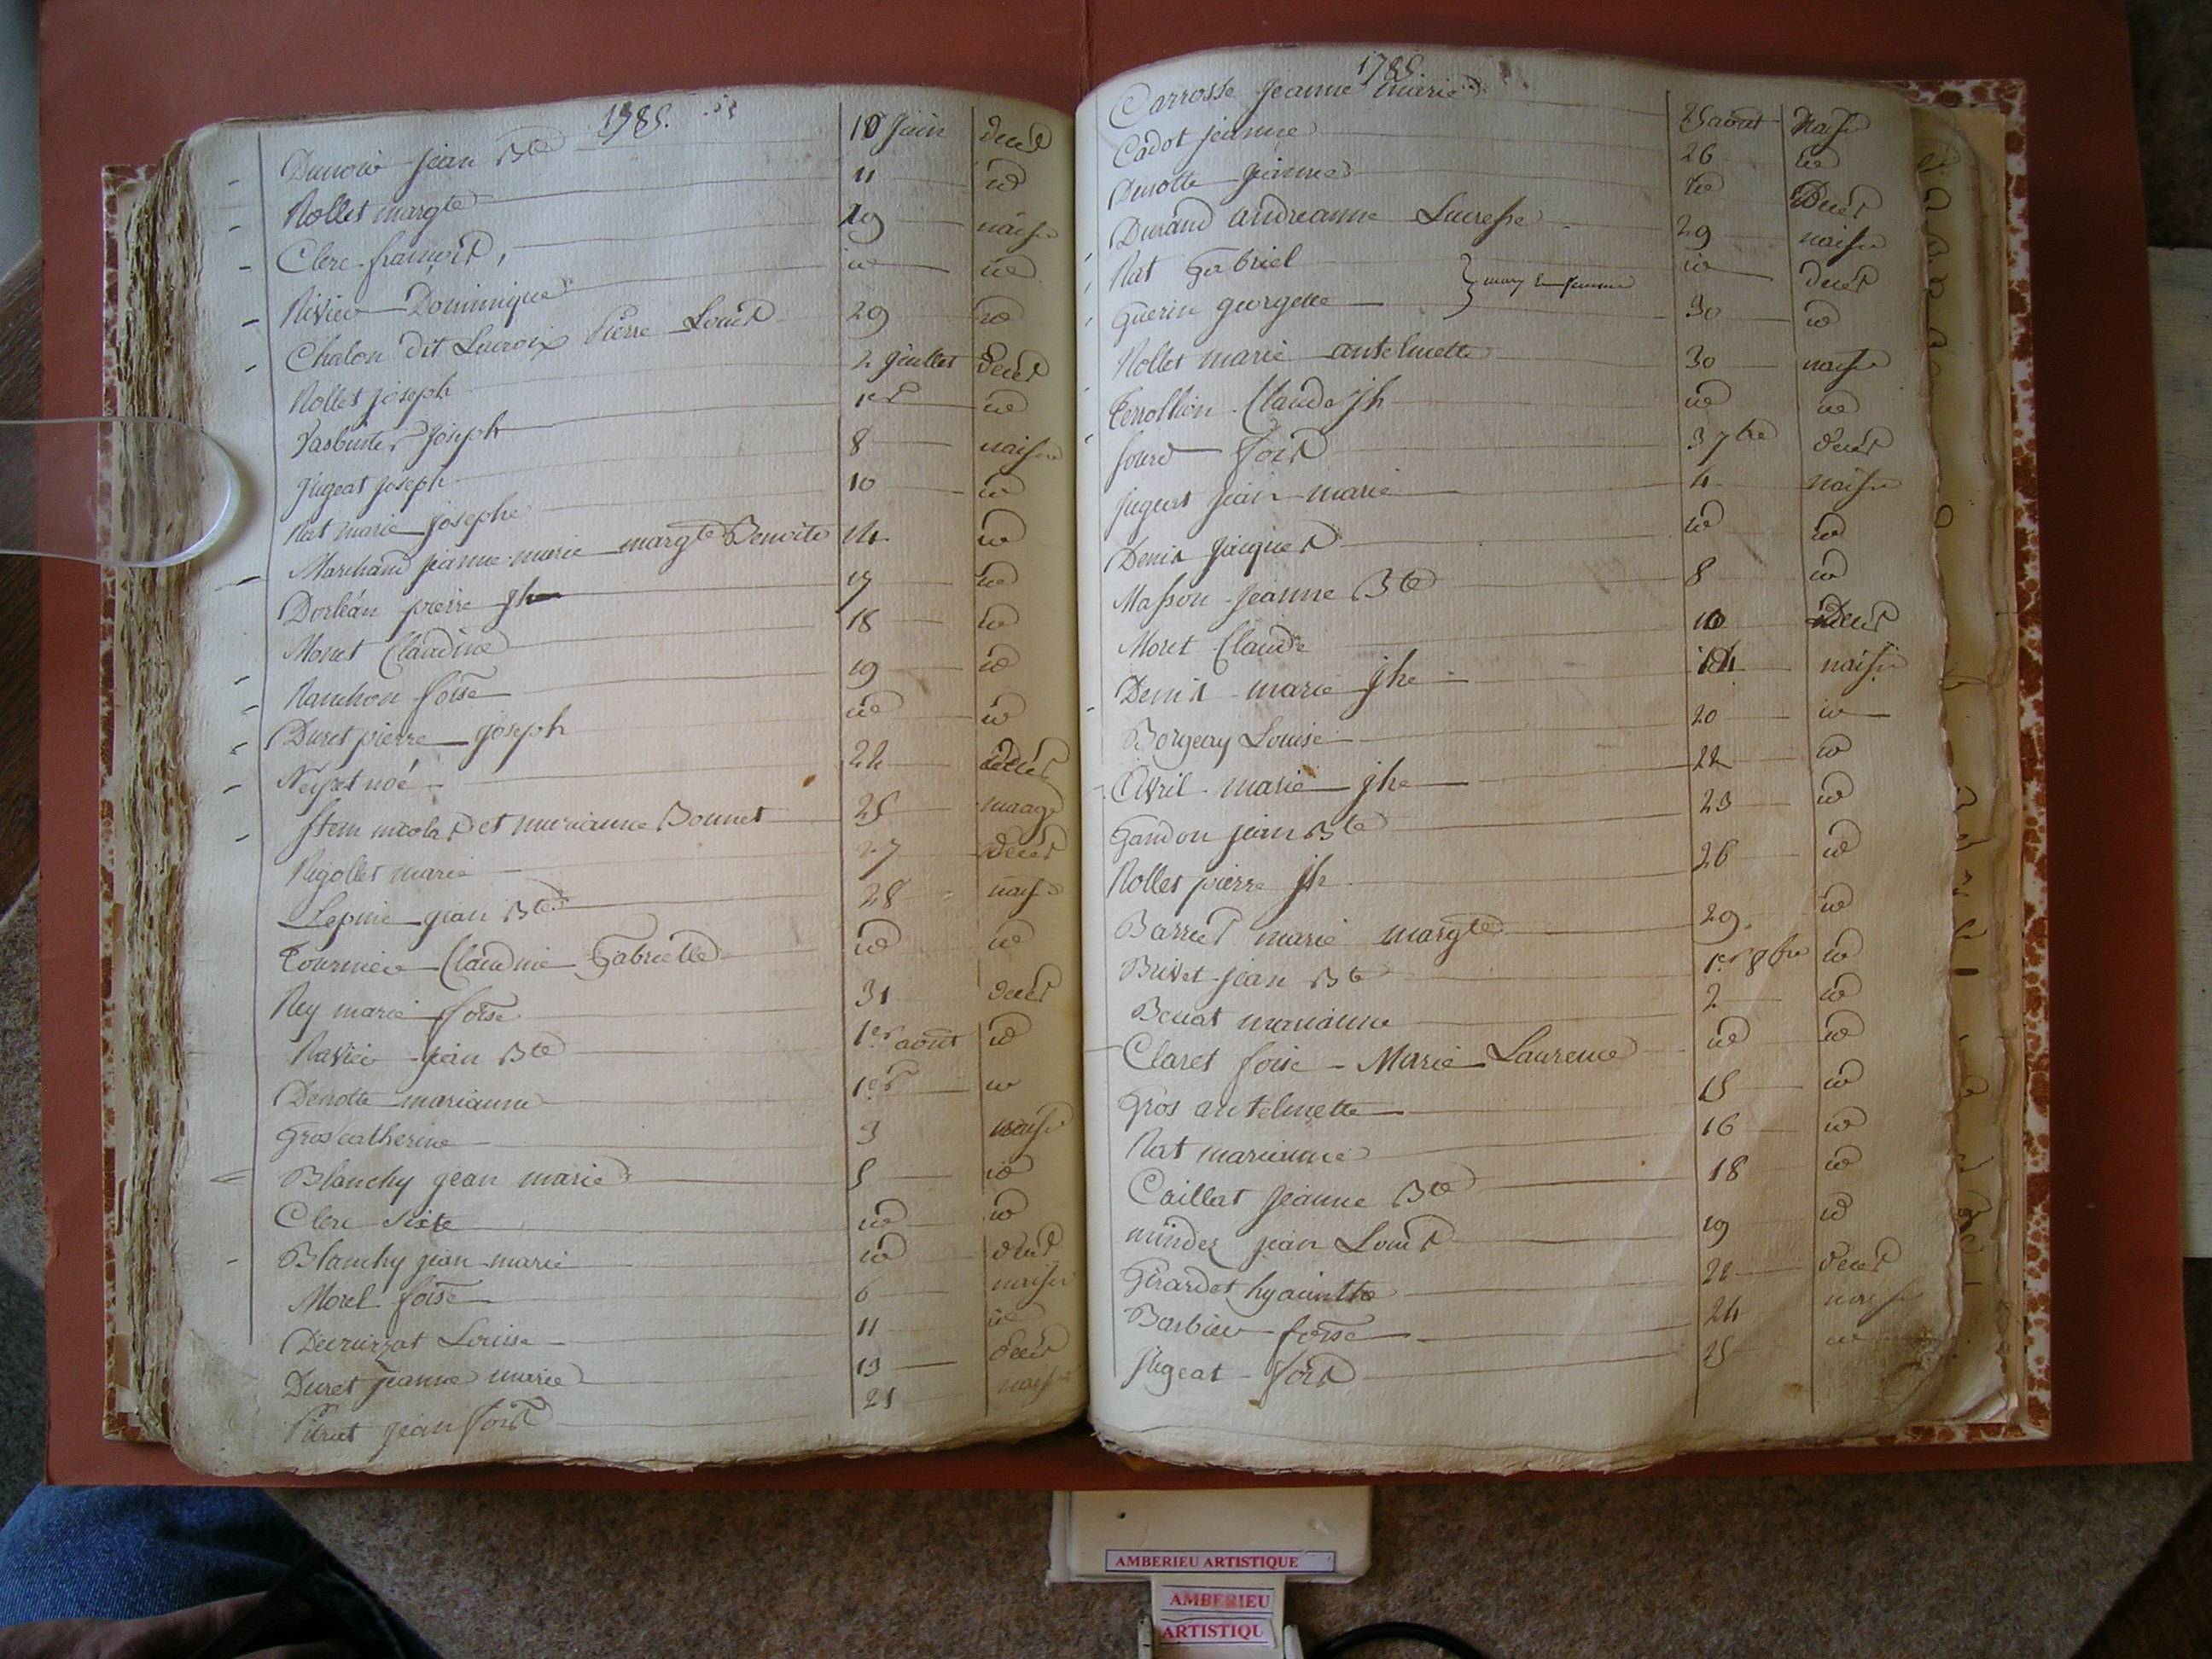 1785.
Dunoir jean Bte 10 juin decès
Rollet margte 11 id
Clerc françois, 19 naisce
Rivier Dominique id id
Chalon dit Lacroix Pierre Louis 29 id
Rollet joseph 2 juillet decès
joseph 1er id
jugeat joseph 8 naisce
Rat marie josephe 10 id
Marchand jeanne marie margte Benoite 14 id
Dorléan pierre jh 17 id
Moret Claudine 18 id
Ranchon foise 19 id
Duret pierre joseph id id
noé 22 decès
Stem nicolas et marianne Bonnet 25 mariage
Rigollet marie 27 decès
Lepine jean Bte 28 naisce
Tournier Claudine Gabrielle id id
Rey marie foise 31 decès
Ravier jean Bte 1er aout id
Denotte marianne 1er id
Gros catherine 3 naisce
Blanchy jean marie 5 id
Clerc sixte id id
Blanchy jean marie id decès
Morel foise 6 naisce
Louise 11 id
Duret jeanne marie 13 decès
jean fois 21 naisce
1785.
Carrosse jeanne marie 25 aout naisce
Cadot jeanne 26 id
Denotte jeanne id Decès
Durand andreanne Lucresse 29 naisce
Rat Gabriel id decès
} mary & femme
Guerin georgette 30 id
Rollet marie antelmette 30 naisce
Terrollion Claude jh id id
fois 3 7bre decès
jugeat jean marie 4 naisce
Denis jacques id id
Masson jeanne Bte 8 id
Moret Claude 10 Decès
Denis marie jhe 14 naisce
Borgeay Louise 20 id
Avril marie jhe 22 id
Gandon jean Bte 23 id
Rollet pierre jh 26 id
Barret marie margte 29 id
Brivet jean Bte 1er 8bre id
marianne 2 id
Claret foise Marie Laurence id id
Gros antelmette 15 id
Rat marianne 16 id
Caillat jeanne Bte 18 id
mindez jean Louis 19 id
Girardet hyacinthe 22 decès
Barbier foise 24 naisce
jugeat fois 25 id
AMBERIEU ARTISTIQUE
AMBERIEU
ARTISTIQU